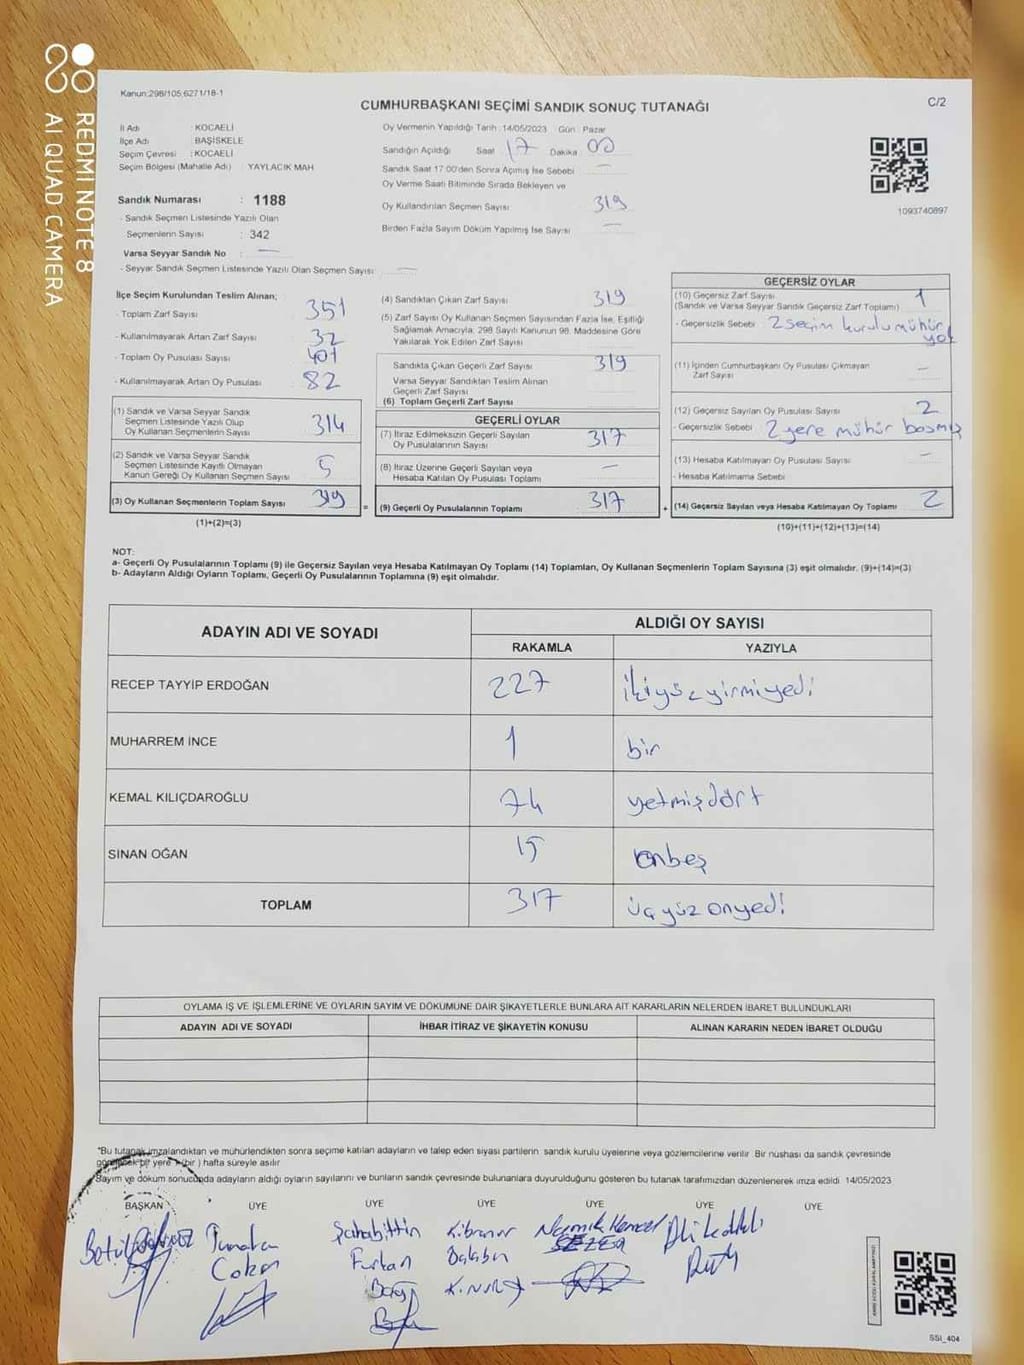 Kanun:298/105,6271/18-1
CUMHURBAŞKANI SEÇİMİ SANDIK SONUÇ TUTANAĞI
C/2
İl Adı : KOCAELİ
İlçe Adı : BAŞİSKELE
Seçim Çevresi : KOCAELİ
Seçim Bölgesi (Mahalle Adı) YAYLACIK MAH
Sandık Numarası : 1188
- Sandık Seçmen Listesinde Yazılı Olan
Seçmenlerin Sayısı : 342
Varsa Seyyar Sandık No : —
- Seyyar Sandık Seçmen Listesinde Yazılı Olan Seçmen Sayısı: —
Oy Vermenin Yapıldığı Tarih :14/05/2023 Gün : Pazar
Sandığın Açıldığı Saat 17 Dakika 00
Sandık Saat 17:00'den Sonra Açılmış İse Sebebi —
Oy Verme Saati Bitiminde Sırada Bekleyen ve
Oy Kullandırılan Seçmen Sayısı 319
Birden Fazla Sayım Döküm Yapılmış İse Sayısı —
1093740897
İlçe Seçim Kurulundan Teslim Alınan;
- Toplam Zarf Sayısı : 351
- Kullanılmayarak Artan Zarf Sayısı : 32
- Toplam Oy Pusulası Sayısı : 401
- Kullanılmayarak Artan Oy Pusulası : 82
(1) Sandık ve Varsa Seyyar Sandık
Seçmen Listesinde Yazılı Olup
Oy Kullanan Seçmenlerin Sayısı 314
(2) Sandık ve Varsa Seyyar Sandık
Seçmen Listesinde Kayıtlı Olmayan
Kanun Gereği Oy Kullanan Seçmen Sayısı 5
(3) Oy Kullanan Seçmenlerin Toplam Sayısı 319
(1)+(2)=(3)
(4) Sandıktan Çıkan Zarf Sayısı 319
(5) Zarf Sayısı Oy Kullanan Seçmen Sayısından Fazla İse, Eşitliği
Sağlamak Amacıyla; 298 Sayılı Kanunun 98. Maddesine Göre
Yakılarak Yok Edilen Zarf Sayısı
Sandıkta Çıkan Geçerli Zarf Sayısı 319
Varsa Seyyar Sandıktan Teslim Alınan
Geçerli Zarf Sayısı
(6) Toplam Geçerli Zarf Sayısı
GEÇERLİ OYLAR
(7) İtiraz Edilmeksizin Geçerli Sayılan
Oy Pusulalarının Sayısı 317
(8) İtiraz Üzerine Geçerli Sayılan veya
Hesaba Katılan Oy Pusulası Toplamı —
= (9) Geçerli Oy Pusulalarının Toplamı 317
GEÇERSİZ OYLAR
(10) Geçersiz Zarf Sayısı
(Sandık ve Varsa Seyyar Sandık Geçersiz Zarf Toplamı) 1
- Geçersizlik Sebebi 2 seçim kurulu mühür
yok
(11) İçinden Cumhurbaşkanı Oy Pusulası Çıkmayan
Zarf Sayısı —
(12) Geçersiz Sayılan Oy Pusulası Sayısı 2
- Geçersizlik Sebebi 2 yere mühür basmış
(13) Hesaba Katılmayan Oy Pusulası Sayısı —
- Hesaba Katılmama Sebebi
+ (14) Geçersiz Sayılan veya Hesaba Katılmayan Oy Toplamı 2
(10)+(11)+(12)+(13)=(14)
NOT:
a- Geçerli Oy Pusulalarının Toplamı (9) ile Geçersiz Sayılan veya Hesaba Katılmayan Oy Toplamı (14) Toplamları, Oy Kullanan Seçmenlerin Toplam Sayısına (3) eşit olmalıdır. (9)+(14)=(3)
b- Adayların Aldığı Oyların Toplamı, Geçerli Oy Pusulalarının Toplamına (9) eşit olmalıdır.
ADAYIN ADI VE SOYADI
ALDIĞI OY SAYISI
RAKAMLA YAZIYLA
RECEP TAYYİP ERDOĞAN 227 ikiyüzyirmiyedi
MUHARREM İNCE 1 bir
KEMAL KILIÇDAROĞLU 74 yetmişdört
SİNAN OĞAN 15 onbeş
TOPLAM 317 üçyüzonyedi
OYLAMA İŞ VE İŞLEMLERİNE VE OYLARIN SAYIM VE DÖKÜMÜNE DAİR ŞİKAYETLERLE BUNLARA AİT KARARLARIN NELERDEN İBARET BULUNDUKLARI
ADAYIN ADI VE SOYADI İHBAR İTİRAZ VE ŞİKAYETİN KONUSU ALINAN KARARIN NEDEN İBARET OLDUĞU
*Bu tutanak imzalandıktan ve mühürlendikten sonra seçime katılan adayların ve talep eden siyasi partilerin sandık kurulu üyelerine veya gözlemcilerine verilir. Bir nüshası da sandık çevresinde
görülecek bir yere (bir) hafta süreyle asılır.
Sayım ve döküm sonucunda adayların aldığı oyların sayılarını ve bunların sandık çevresinde bulunanlara duyurulduğunu gösteren bu tutanak tarafımızdan düzenlenerek imza edildi. 14/05/2023
BAŞKAN ÜYE ÜYE ÜYE ÜYE ÜYE ÜYE
Betül
Şahabittin
Furkan
Namık Kemal
SEZER
SSİ_404
REDMI NOTE 8
AI QUAD CAMERA